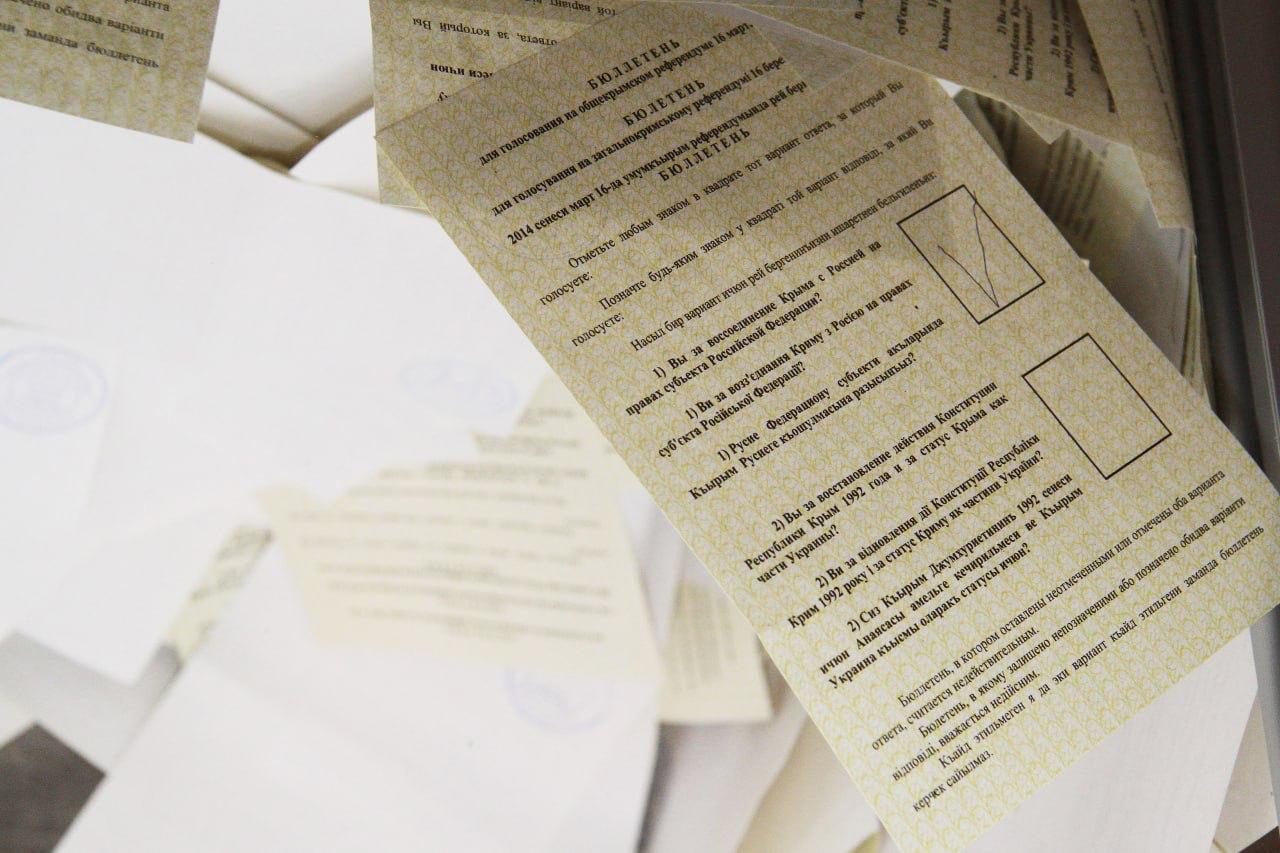 варианта
обидва варіанти
заманда бюллетень
за который Вы
БЮЛЛЕТЕНЬ
для голосования на общекрымском референдуме 16 март
БЮЛЕТЕНЬ
для голосування на загальнокримському референдумі 16 бере
2014 сенеси март 16-да умумкъырым референдумында рей бер
БЮЛЛЕТЕНЬ
Отметьте любым знаком в квадрате тот вариант ответа, за который Вы
голосуете:
Позначте будь-яким знаком у квадраті той варіант відповіді, за який Ви
голосуєте:
Насыл бир вариант ичюн рей бергенинъизни ишаретнен бельгиленъиз:
1) Вы за воссоединение Крыма с Россией на
правах субъекта Российской Федерации?
1) Ви за возз'єднання Криму з Росією на правах
суб'єкта Російської Федерації?
1) Русие Федерациону субъекти акъларында
Къырым Русиеге къошулмасына разысынъыз?
2) Вы за восстановление действия Конституции
Республики Крым 1992 года и за статус Крыма как
части Украины?
2) Ви за відновлення дії Конституції Республіки
Крим 1992 року і за статус Криму як частини України?
2) Сиз Къырым Джумхуриетининъ 1992 сенеси
ичюн Анаясасы амельге кечирильмеси ве Къырым
Украина къысмы оларакъ статусы ичюн?
Бюллетень, в котором оставлены неотмеченными или отмечены оба варианта
ответа, считается недействительным.
Бюлетень, в якому залишено непозначеними або позначено обидва варіанти
відповіді, вважається недійсним.
Къайд этильмеген я да эки вариант къайд этильгени заманда бюллетень
керчек сайылмаз.